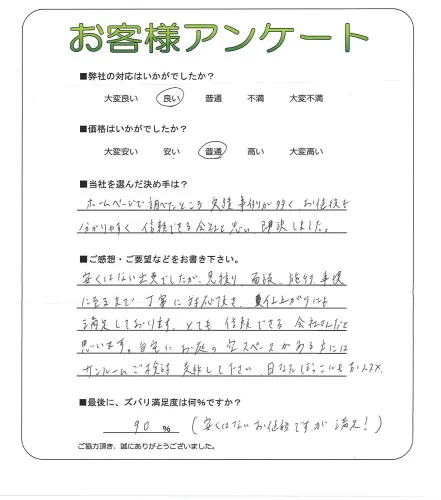 お客様アンケート
■弊社の対応はいかがでしたか？
大変良い 良い 普通 不満 大変不満
■価格はいかがでしたか？
大変安い 安い 普通 高い 大変高い
■当社を選んだ決め手は？
ホームページで調べたところ 実績 事例が多く、お値段も
分かりやすく 信頼できる会社と思い、即決しました。
■ご感想・ご要望などをお書き下さい。
安くはない出費でしたが、見積り、面談、
に至るまで 丁寧に対応頂き、仕上がりにも
満足しております。とても 信頼できる 会社さんだと
思います。自宅に お庭の 空スペースがある方には
サンルームご検討 是非して下さい。日なたぼっこにもおススメ。
■最後に、ズバリ満足度は何%ですか？
90 % (安くはないお値段ですが 満足！)
ご協力頂き、誠にありがとうございました。